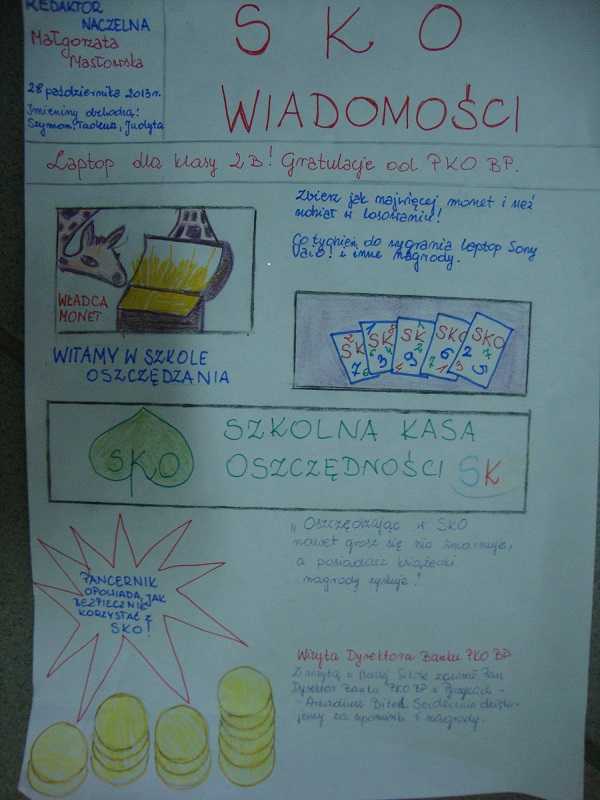 REDAKTOR
NACZELNA
Małgorzata
Masłowska
28 października 2013 r.
Imieniny obchodzą:
Szymon, Tadeusz, Judyta
S K O
WIADOMOŚCI
Laptop dla klasy 2B! Gratulacje od PKO BP.
Zbierz jak najwięcej monet i weź
udział w losowaniu!
Co tydzień do wygrania laptop Sony
Vaio! i inne nagrody.
WŁADCA
MONET
WITAMY W SZKOLE
OSZCZĘDZANIA
SK SK SK SKO SKO
7 3 9 6 2 5
SKO
SZKOLNA KASA
OSZCZĘDNOŚCI SK
"Oszczędzając w SKO
nawet grosz się nie zmarnuje,
a posiadacz książeczki
nagrody zyskuje!
PANCERNIK
OPOWIADA, JAK
BEZPIECZNIE
KORZYSTAĆ Z
SKO!
Wizyta Dyrektora Banku PKO BP
Z wizytą w naszej szkole Pan
Dyrektor Banku PKO BP w
Arkadiusz Serdecznie dzięku-
jemy za upominki i nagrody.